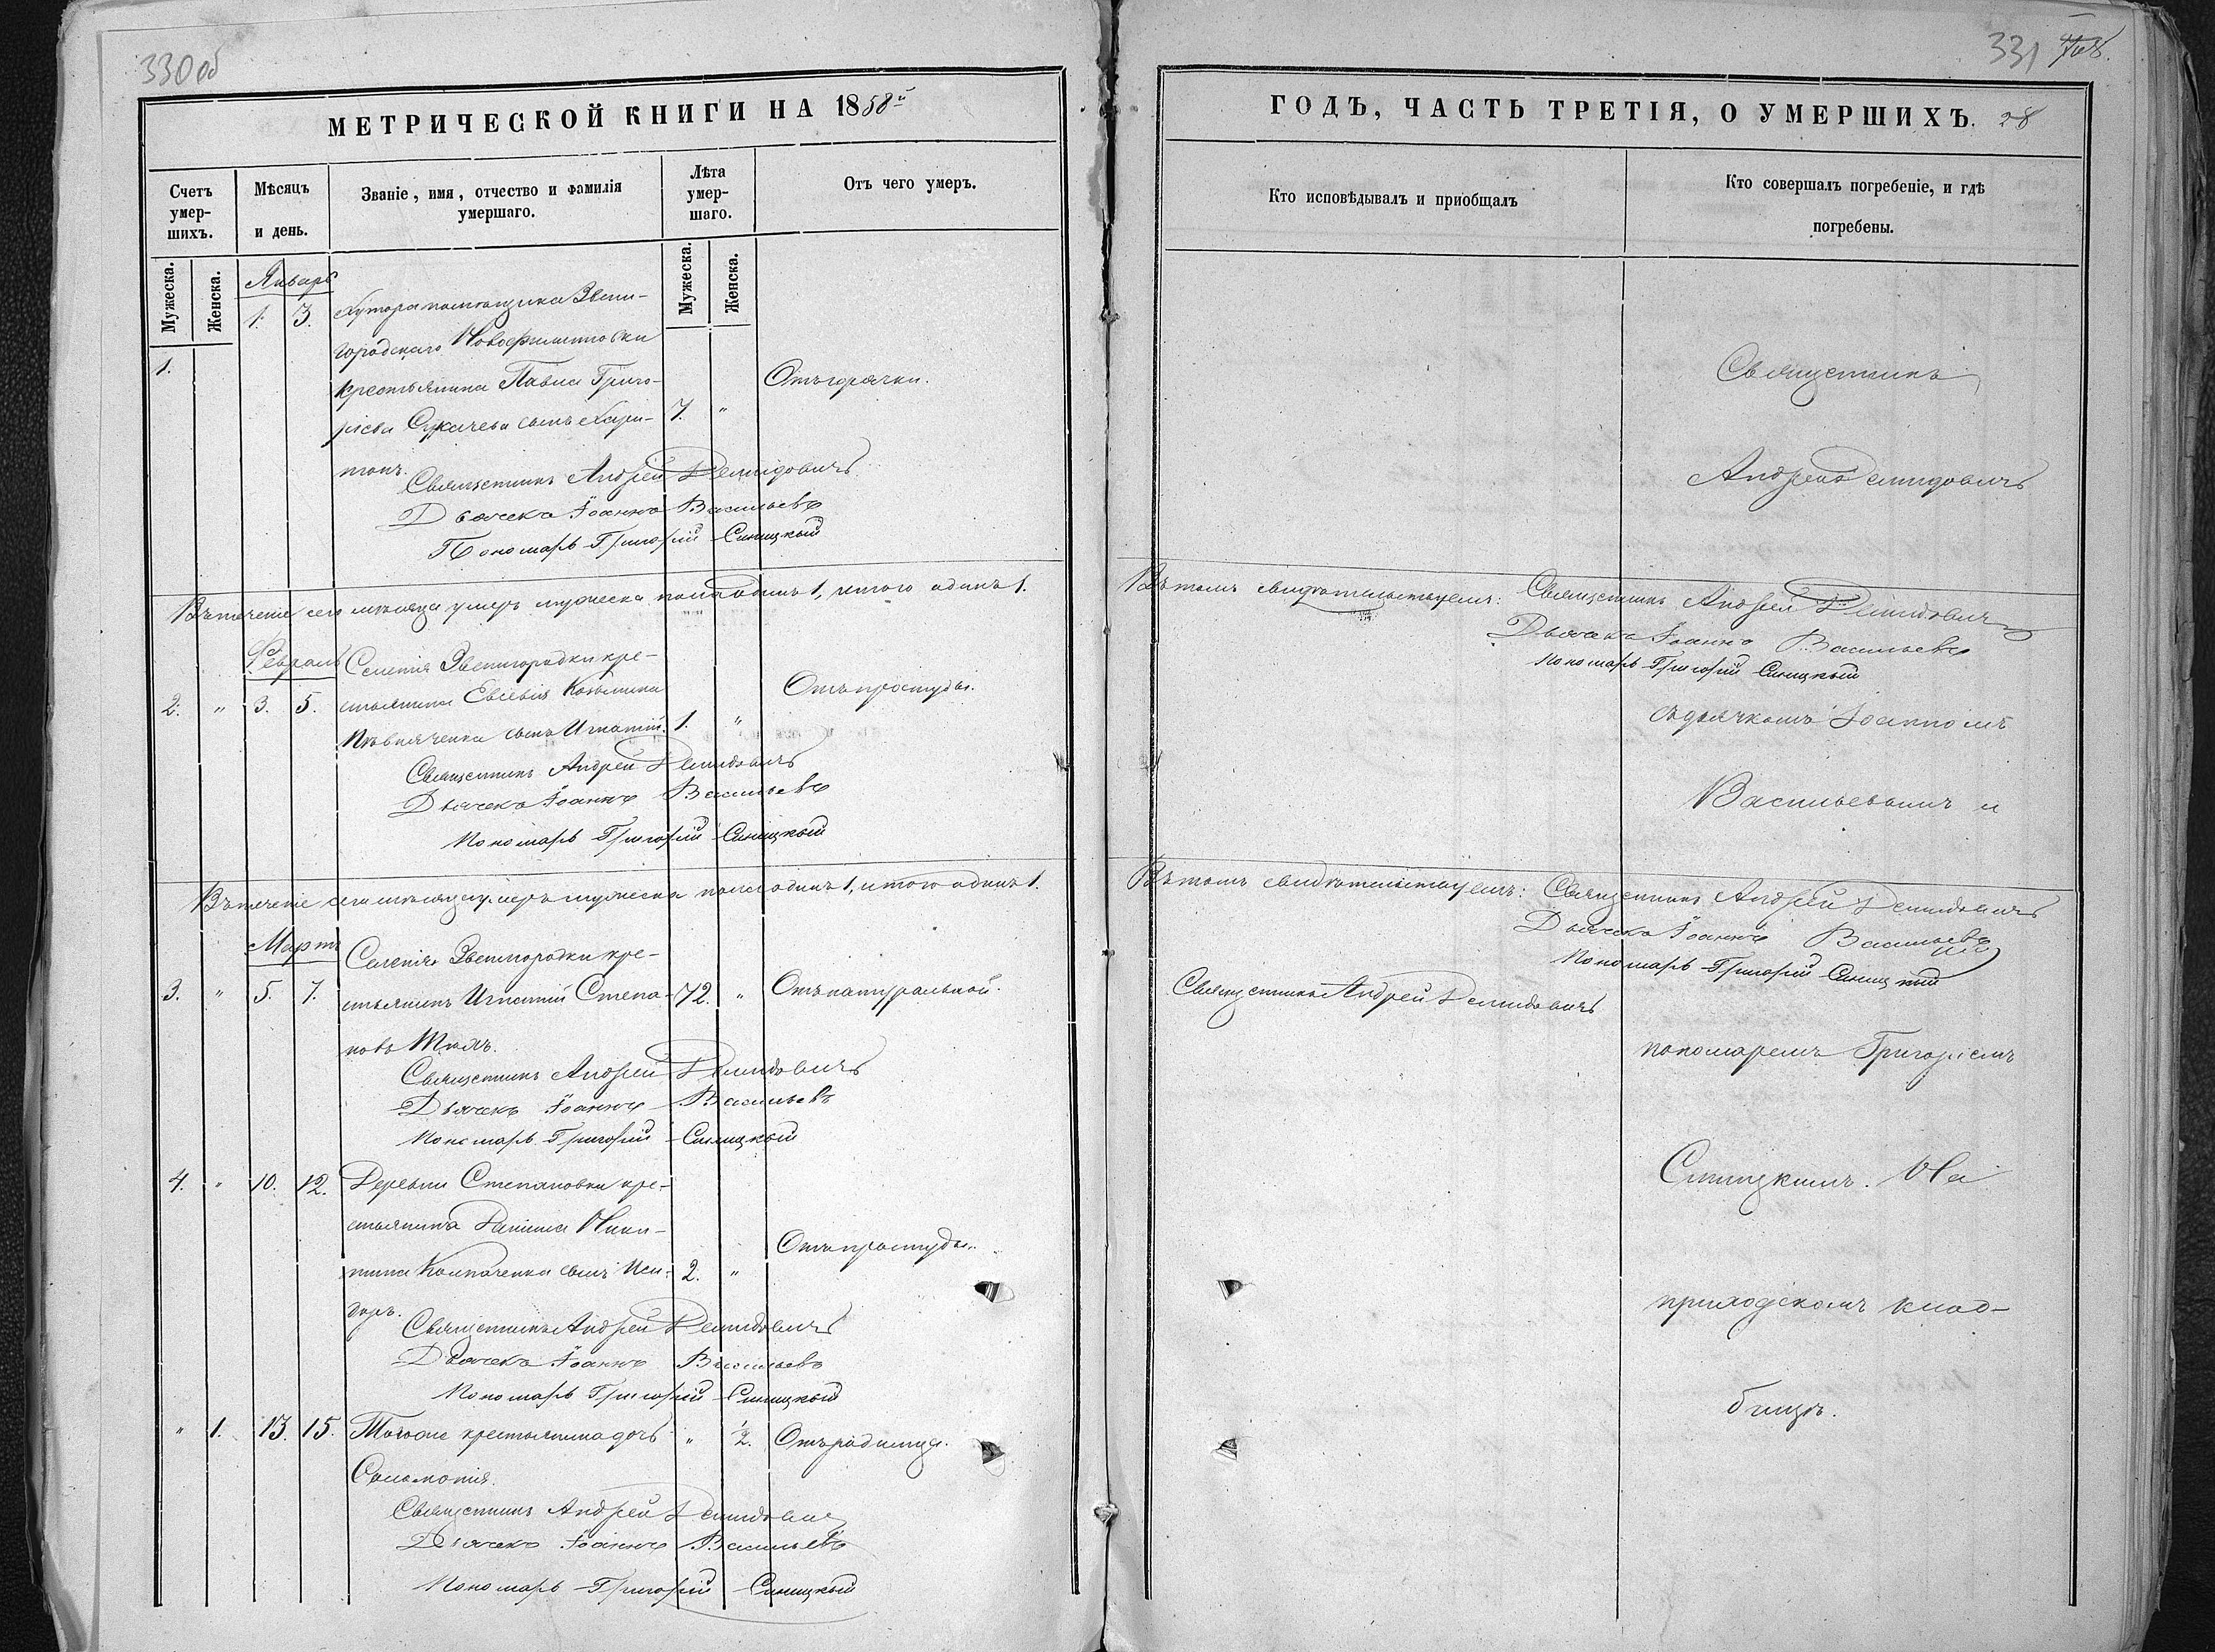 330 об
МЕТРИЧЕСКОЙ КНИГИ НА 1858й
Счетъ умер-шихъ.
Мѣсяцъ и день.
Званіе, имя, отчество и фамилія умершаго.
Лѣта умер-шаго.
Отъ чего умеръ.
Мужеска.
Женска.
Мужеска.
Женска.
Январь
1. 1. 3. Хутора помѣщика Звени-
городскаго
крестьянина Павла Григо-
рієва Сукачева сынъ Хари- 7. " Отъ горячки.
тонъ.
Священникъ Андрей Демидовичъ
Дьячекъ Іоаннъ Васильевъ
Пономарь Григорій Синицкый
Въ теченіе сего мѣсяца умеръ мужеска пола одинъ 1, итого одинъ 1.
Февраль
Селенія Звенигородки кре-
2. " 3. 5. стьянина Евсевія Козьмина Отъ простуды.
сынъ Игнатій. 1. "
Священникъ Андрей Демидовичъ
Дьячекъ Іоаннъ Васильевъ
Пономарь Григорій Синицкый
Въ теченіе сего мѣсяца умеръ мужеска пола одинъ 1, итого одинъ 1.
Мартъ
Селенія Звенигородки кре-
3. " 5. 7. стьянинъ Игнатій Степа- 72. " Отъ натуральной.
новъ
Священникъ Андрей Демидовичъ
Дьячекъ Іоаннъ Васильевъ
Пономарь Григорій Синицкый
4. " 10. 12. Деревни Степановки кре-
стьянина Даніила Ники-
тина Колпаченка сынъ Иси- 2. " Отъ простуды.
доръ.
Священникъ Андрей Демидовичъ
Дьячекъ Іоаннъ Васильевъ
Пономарь Григорій Синицкый
" 1. 13. 15. Тогоже крестьянина дочь " 1/2. Отъ родимца.
Соломонія.
Священникъ Андрей Демидовичъ
Дьячекъ Іоаннъ Васильевъ
Пономарь Григорій Синицкый
331
ГОДЪ, ЧАСТЬ ТРЕТІЯ, О УМЕРШИХЪ. 28
Кто исповѣдывалъ и приобщалъ
Кто совершалъ погребеніе, и гдѣ
погребены.
Священникъ
Андрей Демидовичъ
Въ томъ свидѣтельствуемъ: Священникъ Андрей Демидовичъ
Дьячекъ Іоаннъ Васильевъ
Пономарь Григорій Синицкый
съ дьячкомъ Іоанномъ
Васильевымъ и
Въ томъ свидѣтельствуемъ: Священникъ Андрей Демидовичъ
Дьячекъ Іоаннъ Васильевъ
Пономарь Григорій Синицкый
Священникъ Андрей Демидовичъ
пономаремъ Григоріемъ
Синицкимъ. На
приходскомъ клад-
бищѣ.